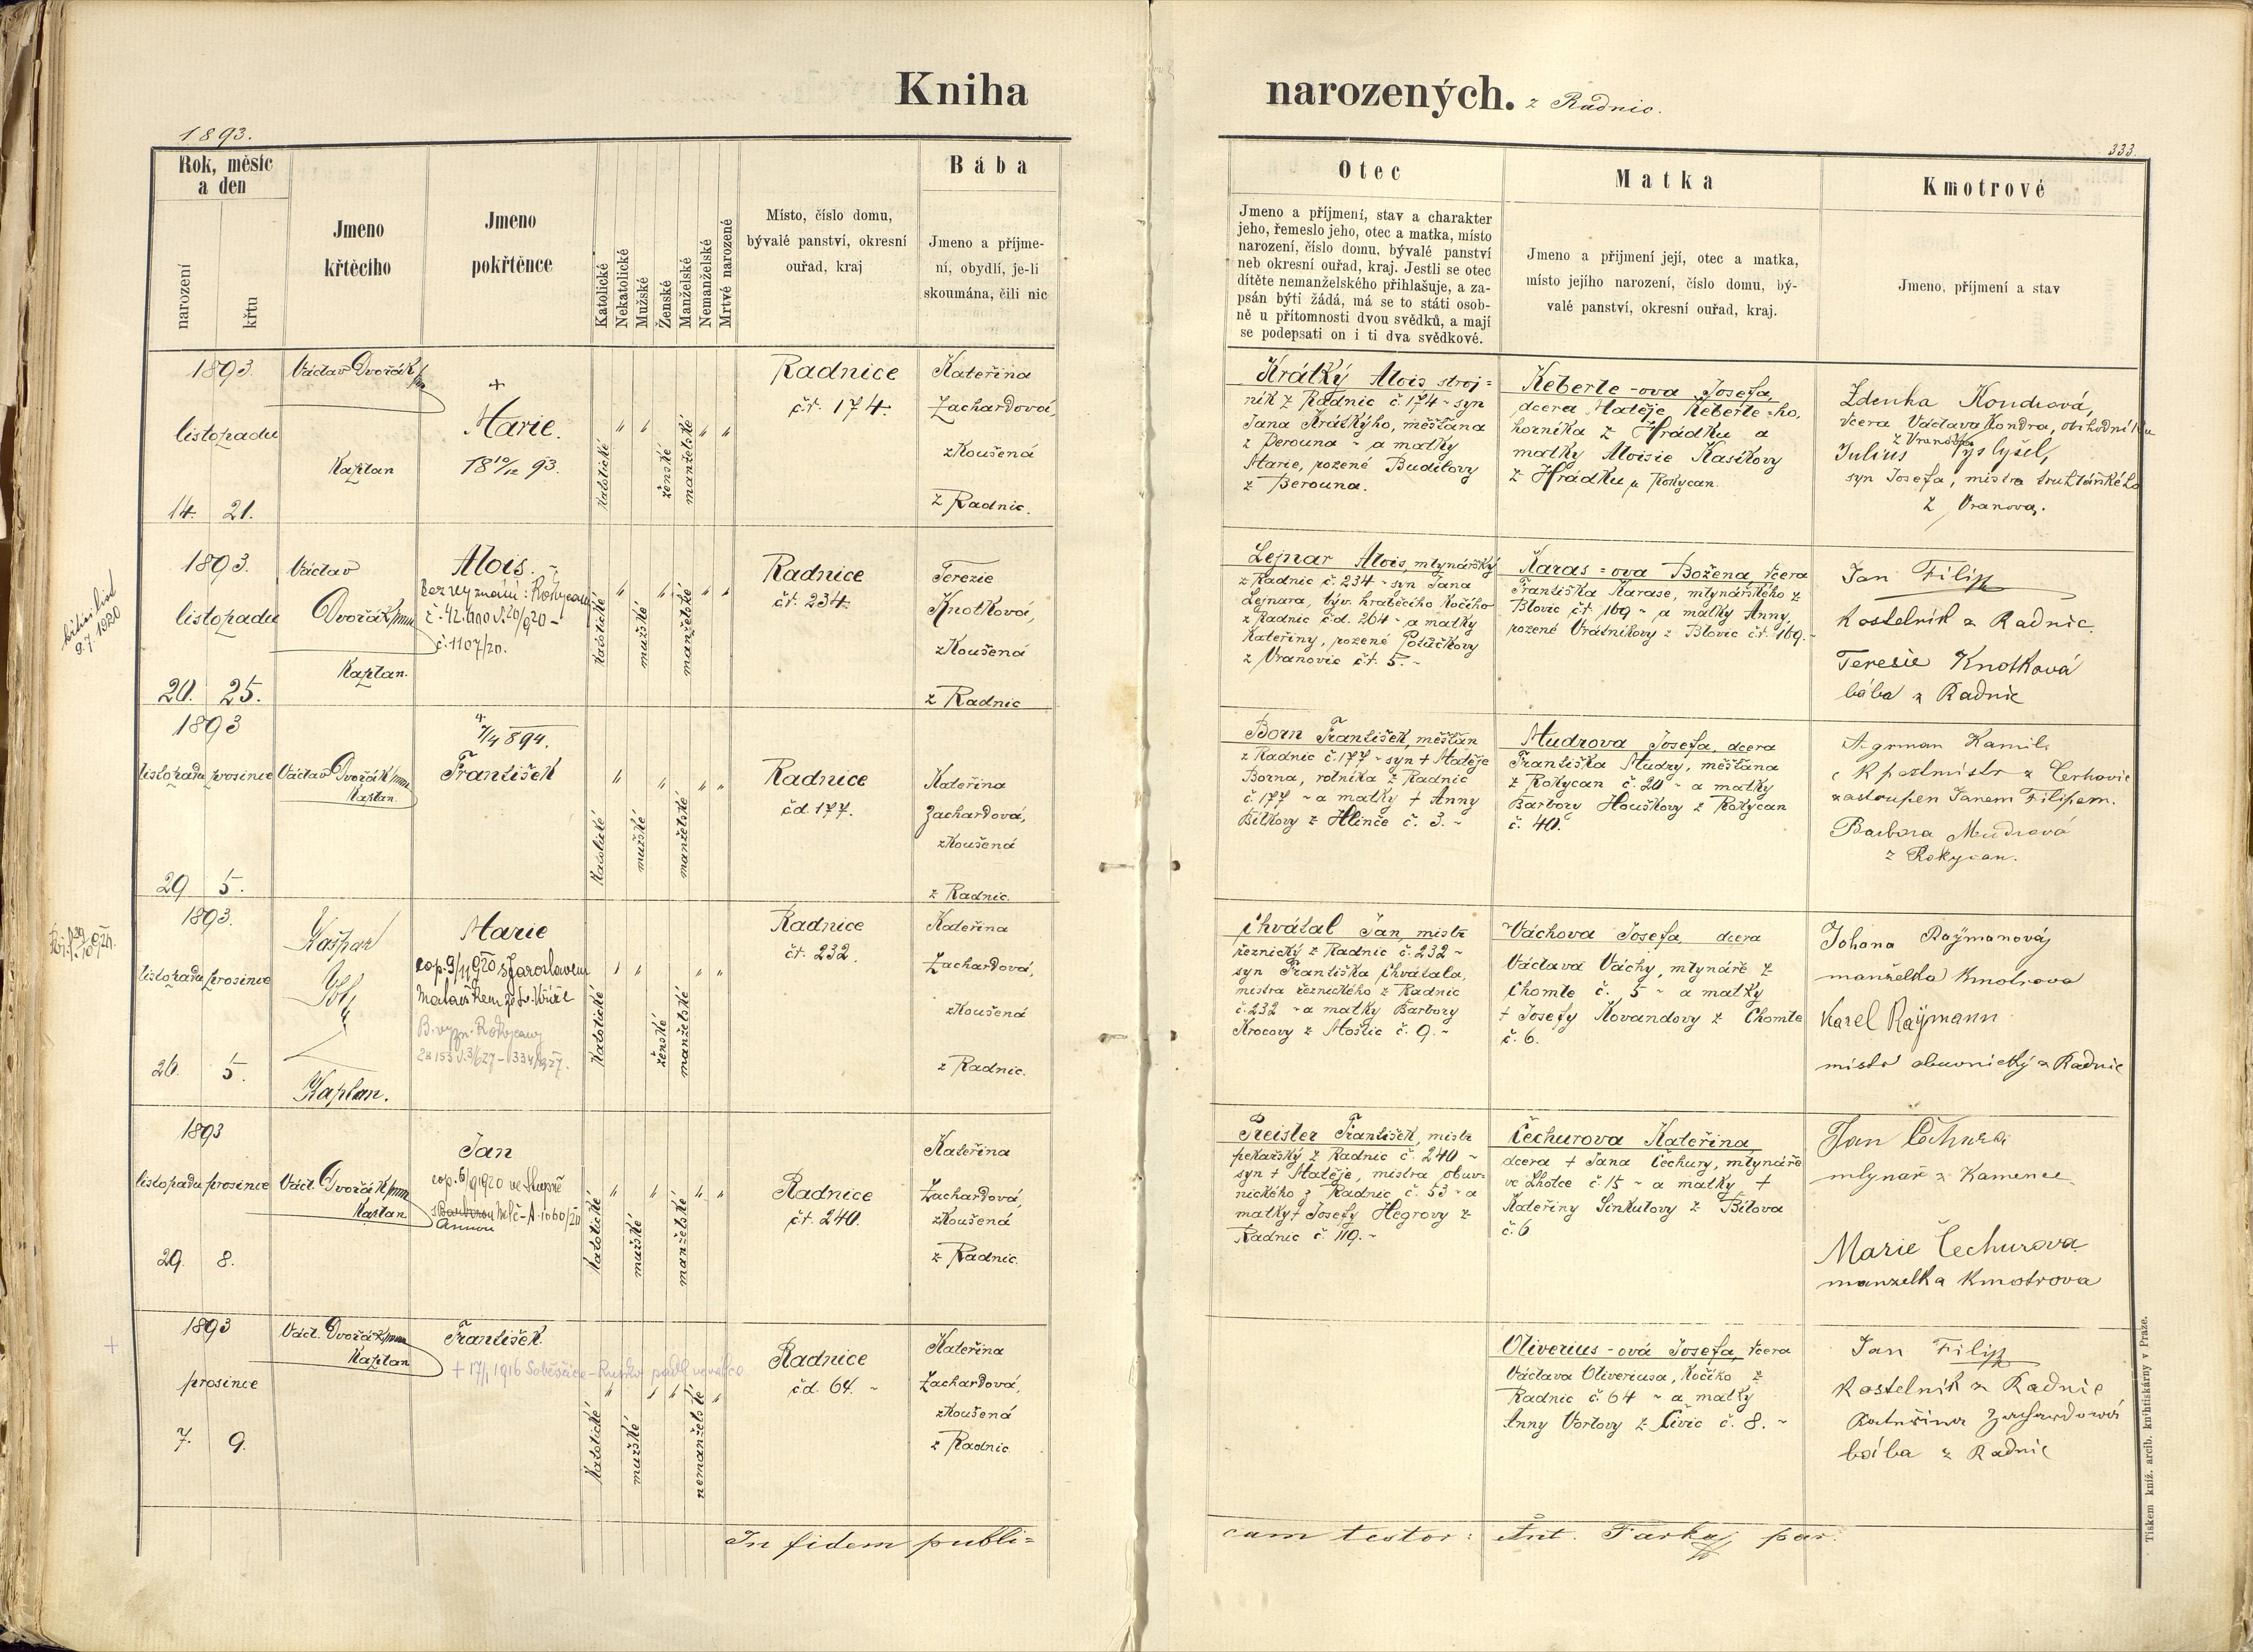 Kniha narozených. z Radnic.
1893.
333.
Rok, měsíc
a den
narození
křtu
Jmeno
křtěcího
Jmeno
pokřtěnce
Katolické
Nekatolické
Mužské
Ženské
Manželské
Nemanželské
Mrtvé narozené
Místo, číslo domu,
bývalé panství, okresní
ouřad, kraj
Bába
Jmeno a příjme-
ní, obydlí, je-li
skoumána, čili nic
Otec
Jmeno a příjmení, stav a charakter
jeho, řemeslo jeho, otec a matka, místo
narození, číslo domu, bývalé panství
neb okresní ouřad, kraj. Jestli se otec
dítěte nemanželského přihlašuje, a za-
psán býti žádá, má se to státi osob-
ně u přítomnosti dvou svědků, a mají
se podepsati on i ti dva svědkové.
Matka
Jmeno a přijmení její, otec a matka,
místo jejího narození, číslo domu, bý-
valé panství, okresní ouřad, kraj.
Kmotrové
Jmeno, příjmení a stav
1893.
listopadu
14. 21.
Václav Dvořák
Kaplan
+
Marie.
18 10/12 93.
Katolické
ženské
manželské
Radnice
čt. 174.
Kateřina
Zachardová,
zkoušená
z Radnic.
Krátký Alois, stroj=
ník z Radnic č. 174 - syn
Jana Krátkýho, měšťana
z Berouna - a matky
Marie, rozené Budilovy
z Berouna.
Keberle-ova Josefa,
dcera Matěje Keberle-ho,
horníka z Hrádku a
matky Aloisie Kasíkovy
z Hrádku u Rokycan.
Zdenka Kondrová,
dcera Václava Kondra, obchodníka
z Vranova
Julius Vyslyšel,
syn Josefa, mistra truhlářského
z Vranova.
1893.
listopadu
20. 25.
křticí list
9.7 1920
Václav
Dvořák/mm
Kaplan.
Alois.
Bez vyznání: Rokycany
č. 1107/20.
Katolické
mužské
manželské
Radnice
čt. 234.
Terezie
Knotková,
zkoušená
z Radnic
Lejnar Alois, mlynářský
z Radnic č. 234 - syn Jana
Lejnara, býv. hraběcího kočího
z Radnic čd. 264 - a matky
Kateřiny, rozené Polužkovy
z Vranovic čt. 5. -
Karas=ova Božena, dcera
Františka Karase, mlynářského z
Blovic čt. 169 - a matky Anny,
rozené Vrátníkovy z Blovic čt. 169.-
Jan Filip
kostelník z Radnic.
Teresie Knotková
bába z Radnic
1893
listopadu prosince
29 5.
Václav Dvořák/mm
Kaplan.
+
7/4 894.
František
Katolické
mužské
manželské
Radnice
čd. 177.
Kateřina
Zachardová,
zkoušená
z Radnic.
Born František, měšťan
z Radnic č. 177 - syn + Matěje
Borna, rolníka z Radnic
č. 177 - a matky + Anny
Bílkovy z Hlince č. 3. -
Mudrova Josefa, dcera
Františka Mudry, měšťana
z Rokycan č. 20 - a matky
Barbory Houškovy z Rokycan
č. 40.
Kamil
z Cerhovic
zastoupen Janem Filipem.
Barbora Mudrová
z Rokycan.
1893.
listopadu prosince
26. 5.
Kašpar
Kaplan.
Marie
cop. 9/11 920 s Jaroslavem
B. vyzn. Rokycany
Katolické
ženské
manželské
Radnice
čt. 232.
Kateřina
Zachardová,
zkoušená
z Radnic.
Chválal Jan, mistr
řeznický z Radnic č. 232 -
syn Františka Chválala,
mistra řeznického z Radnic
č. 232 - a matky Barbory
Krocovy z Moštic č. 9. -
Váchova Josefa, dcera
Václava Váchy, mlynáře z
Chomle č. 5 - a matky
+ Josefy Kovandovy z Chomle
č. 6.
Johana Raymanová
manželka kmotrova
Karel Raymann
mistr obuvnický z Radnic
1893
listopadu prosince
29. 8.
Václ. Dvořák/mm
Kaplan
Jan
s Barborou
Annou
Katolické
mužské
manželské
Radnice
čt. 240.
Kateřina
Zachardová,
zkoušená
z Radnic.
Preisler František, mistr
pekařský z Radnic č. 240 -
syn + Matěje, mistra obuv-
nického z Radnic č. 53 - a
matky + Josefy Hegrovy z
Radnic č. 119. -
Čechurova Kateřina,
dcera + Jana Čechury, mlynáře
ve Lhotce č. 15 - a matky +
Kateřiny Sinkulovy z Bílova
č. 6
Jan Čechura
mlynař z Kamence
Marie Čechurova
manzelka Kmotrova
1893
prosince
7. 9.
Václ. Dvořák/mm
Kaplan
František.
+ 17/1 1916
Katolické
mužské
nemanželské
Radnice
čd. 64. -
Kateřina
Zachardová,
zkoušená
z Radnic.
Oliverius-ová Josefa, dcera
Václava Oliveriusa, kočího z
Radnic č. 64 - a matky
Anny Vorlovy z Čivic č. 8. -
Jan Filip
kostelník z Radnic
Kateřina Zachardová
bába z Radnic
In fidem publi=
cam testor: Ant. par.
Tiskem kníž. arcib. knihtiskárny v Praze.